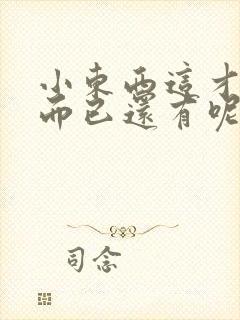 小東西這才
而已還有呢
司念